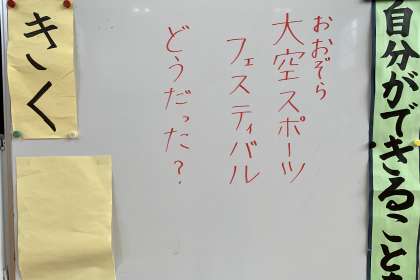 自分ができることを
おおぞら
大空スポーツ
フェスティバル
どうだった?
きく